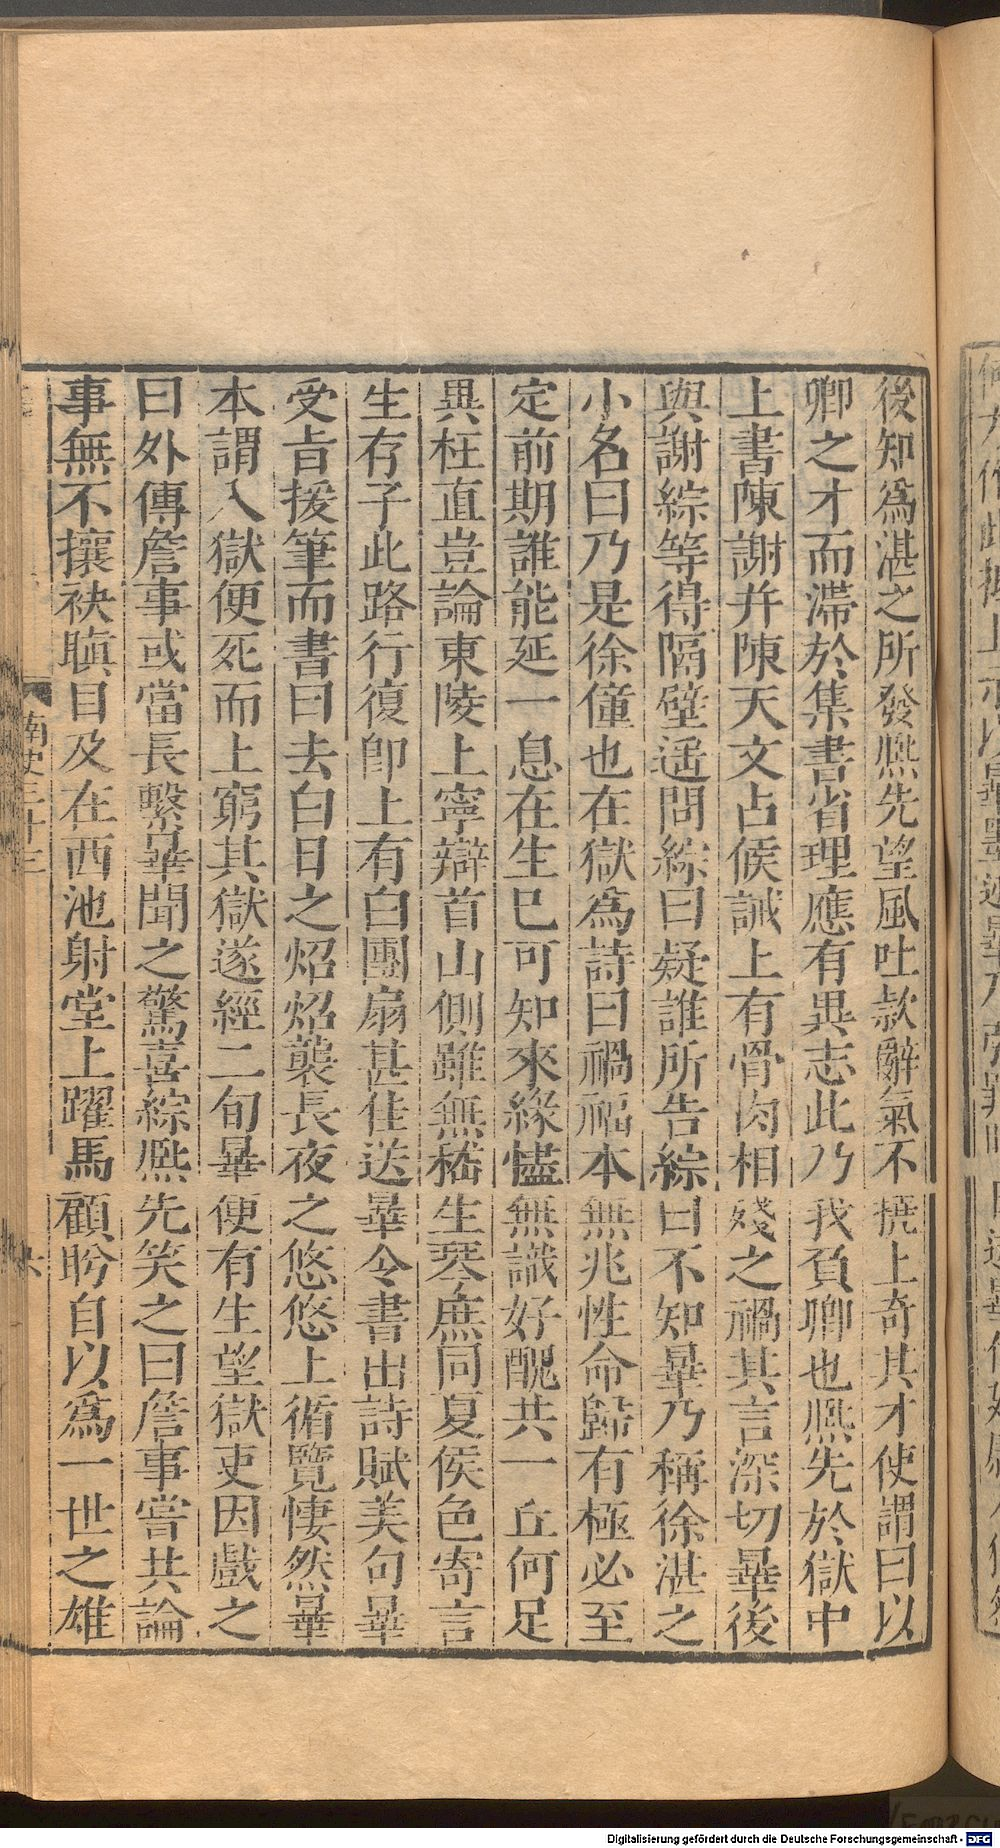 後知爲湛之所發熈先望風吐款辭氣不撓上奇其才使謂曰以
卿之才而滯於集書省理應有異志此乃我負卿也熈先於獄中
上書陳謝幷陳天文占候誡上有骨肉相殘之禍其言深切曅後
與謝綜等得隔壁遥問綜曰疑誰所告綜曰不知曅乃稱徐湛之
小名曰乃是徐僮也在獄爲詩曰禍福本無兆性命歸有極必至
定前期誰能延一息在生已可知來緣㦎無識好醜共一丘何足
異枉直豈論東陵上寧辯首山側雖無嵇生琴庶同夏侯色寄言
生存子此路行復卽上有白團扇甚佳送曅令書出詩賦美句曅
受㫖援筆而書曰去白日之炤炤襲長夜之悠悠上循覽悽然曅
本謂入獄便死而上窮其獄遂經二旬曅便有生望獄吏因戲之
曰外傳詹事或當長繫曅聞之驚喜綜熈先笑之曰詹事嘗共論
事無不攘袂瞋目及在西池射堂上躍馬顧盻自以爲一世之雄
南史三十三
六
Digitalisierung gefördert durch die Deutsche Forschungsgemeinschaft - DFG